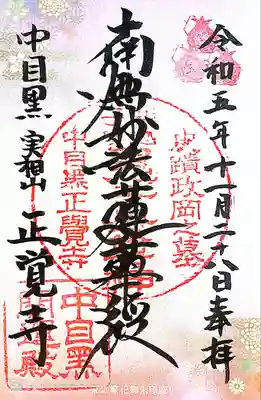 令和五年十一月二八日奉拝
南無妙法蓮華経
史蹟政岡之墓
中目黒正覺寺
中目黒
開運殿
中目黒 実相山 正覚寺